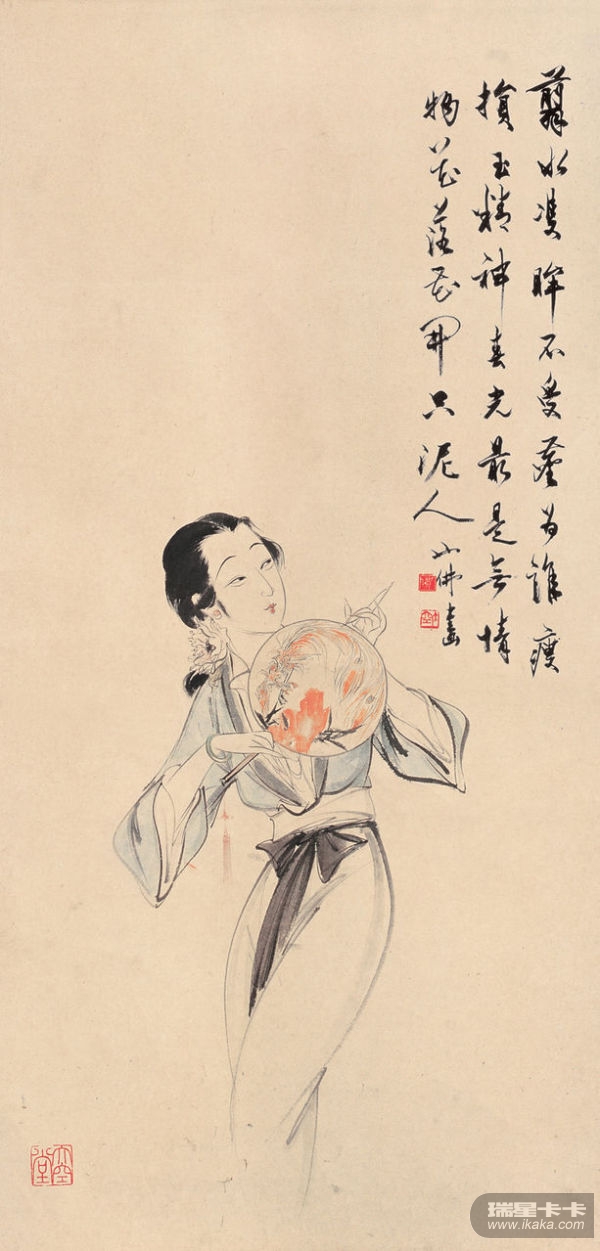 翦水凝眸不受塵為誰瘦
損玉精神春光最是無情
物花落花開只泥人
佛畫
大空堂
瑞星卡卡
www.ikaka.com